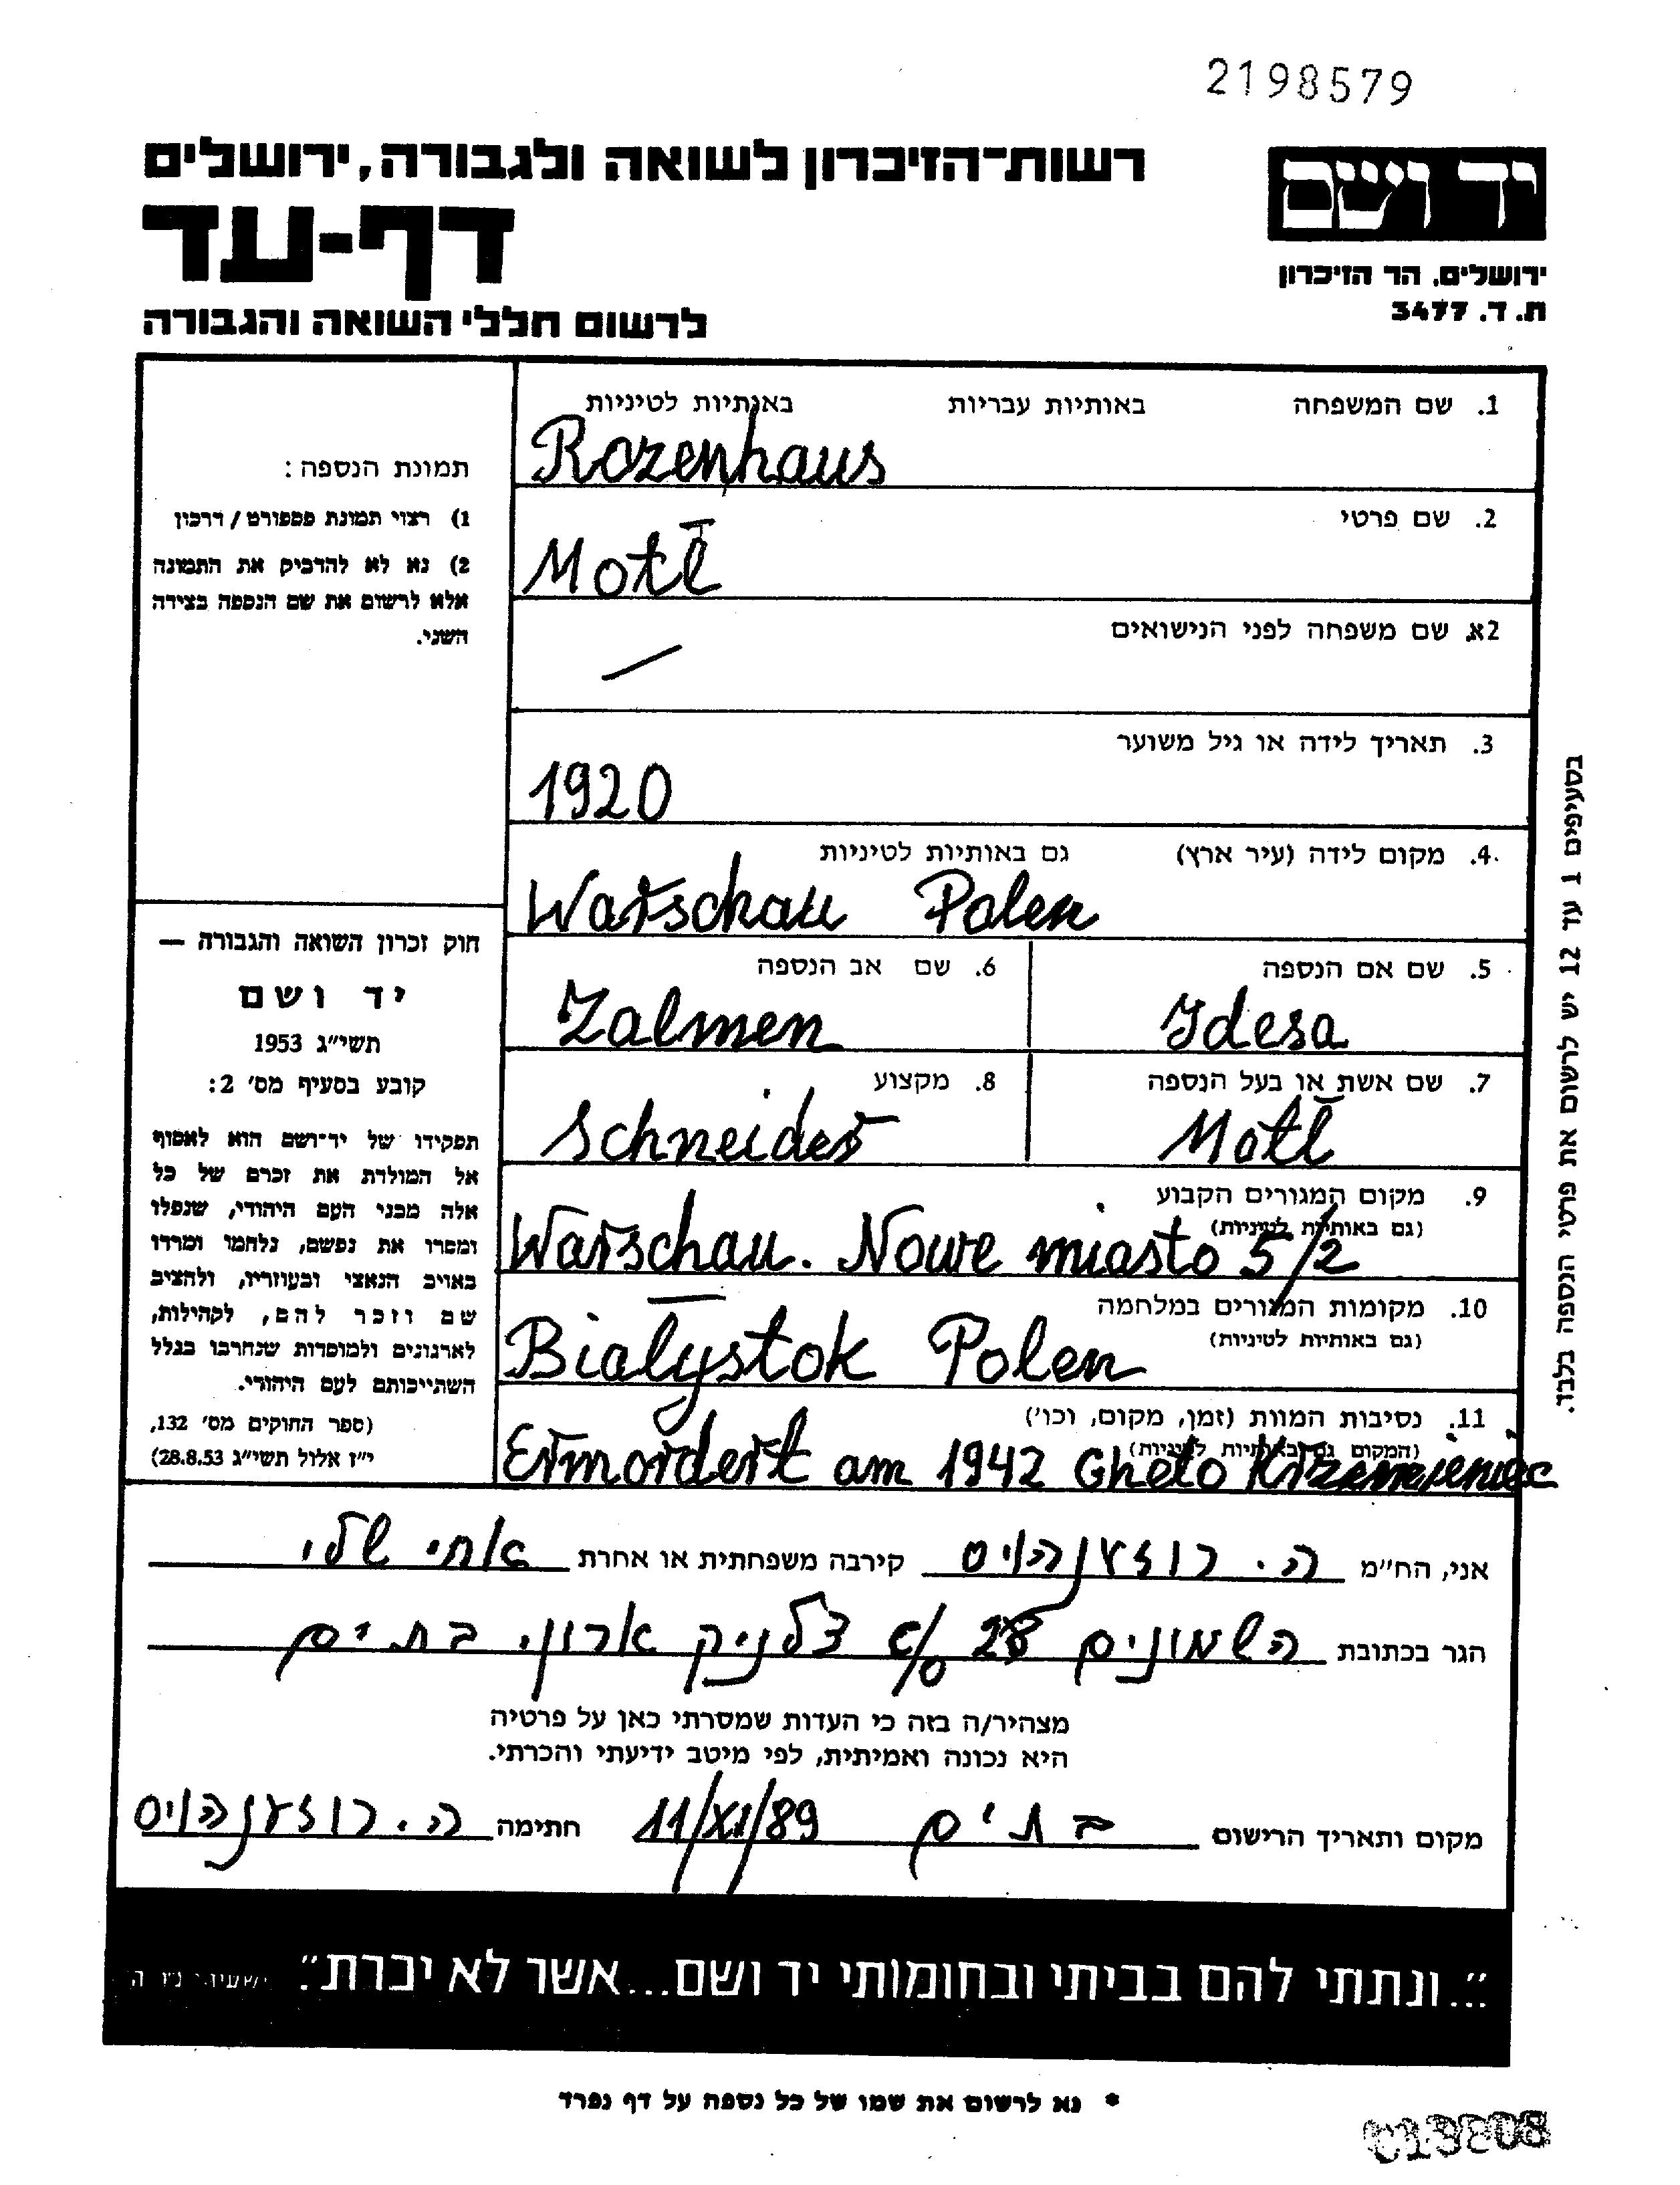 2198579
יד ושם
רשות־הזיכרון לשואה ולגבורה, ירושלים
דף-עד
ירושלים, הר הזיכרון
ת. ד. 3477
לרשום חללי השואה והגבורה
1. שם המשפחה באותיות עבריות באותיות לטיניות
Rozenhaus
2. שם פרטי
Motl
2א. שם משפחה לפני הנישואים
—
3. תאריך לידה או גיל משוער
1920
4. מקום לידה (עיר ארץ) גם באותיות לטיניות
Warschau Polen
5. שם אם הנספה
Idesa
6. שם אב הנספה
Zalmen
7. שם אשת או בעל הנספה
Motl
8. מקצוע
Schneider
9. מקום המגורים הקבוע
(גם באותיות לטיניות)
Warschau. Nowe miasto 5/2
10. מקומות המגורים במלחמה
(גם באותיות לטיניות)
Białystok Polen
11. נסיבות המוות (זמן, מקום, וכו')
(המקום גם באותיות לטיניות)
Ermordert am 1942 Gheto Krzemieniec
תמונת הנספה:
1) רצוי תמונת פספורט / דרכון
2) נא לא להדביק את התמונה
אלא לרשום את שם הנספה בצידה
השני.
חוק זכרון השואה והגבורה —
יד ושם
תשי״ג 1953
קובע בסעיף מס' 2:
תפקידו של יד־ושם הוא לאסוף
אל המולדת את זכרם של כל
אלה מבני העם היהודי, שנפלו
ומסרו את נפשם, נלחמו ומרדו
באויב הנאצי ובעוזריו, ולהציב
שם וזכר להם, לקהילות,
לארגונים ולמוסדות שנחרבו בגלל
השתייכותם לעם היהודי.
(ספר החוקים מס' 132,
י״ז אלול תשי״ג 28.8.53)
בסעיפים 1 עד 12 יש לרשום את פרטי הנספה בלבד.
אני, הח״מ ה. רוזענהויס קירבה משפחתית או אחרת אחי שלי
הגר בכתובת השמונים 28 c/o צלניק ארון. בת ים
מצהיר/ה בזה כי העדות שמסרתי כאן על פרטיה
היא נכונה ואמיתית, לפי מיטב ידיעתי והכרתי.
מקום ותאריך הרישום בת ים 11/XI/89 חתימה ה. רוזענהויס
"...ונתתי להם בביתי ובחומותי יד ושם...אשר לא יכרת". ישעיהו נ״ו ה
* נא לרשום את שמו של כל נספה על דף נפרד